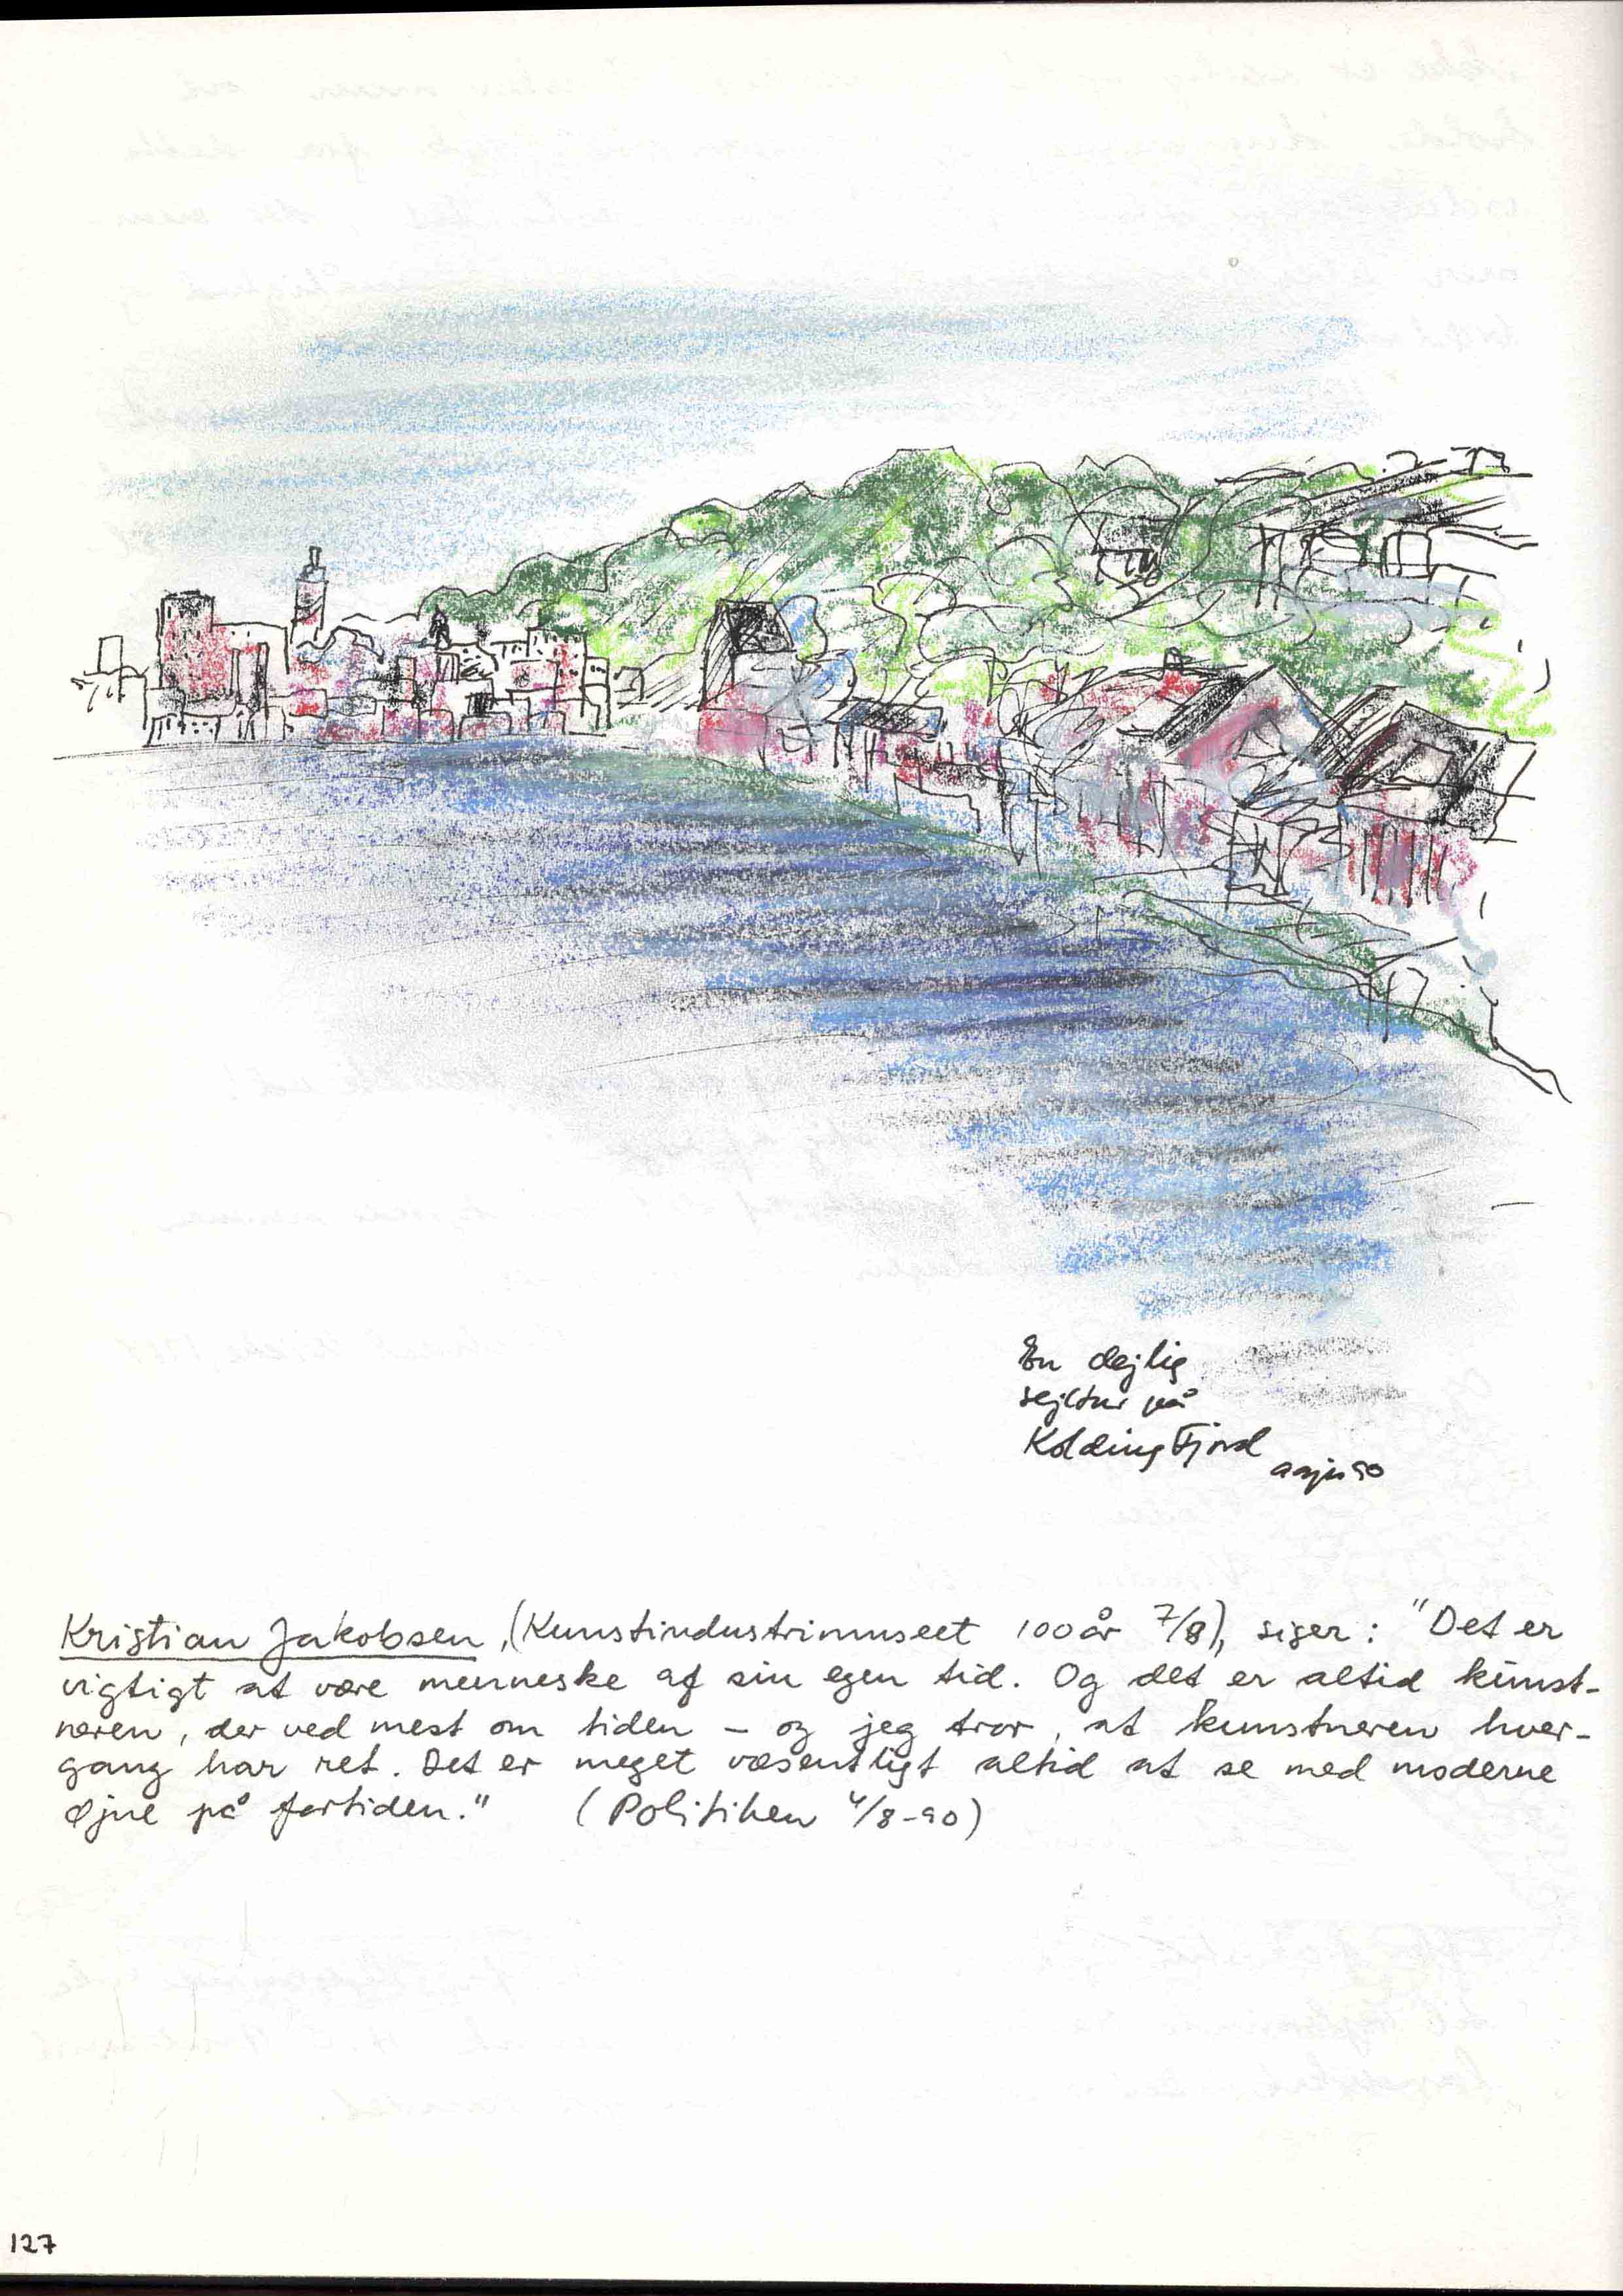 En dejlig
sejltur på
Kolding Fjord
Kristian Jakobsen, (Kunstindustrimuseet 100 år 7/8), siger: "Det er
vigtigt at være menneske af sin egen tid. Og det er altid kunst-
neren, der ved mest om tiden – og jeg tror, at kunstneren hver-
gang har ret. Det er meget væsentligt altid at se med moderne
Øjne på fortiden." (Politiken 4/8-90)
127